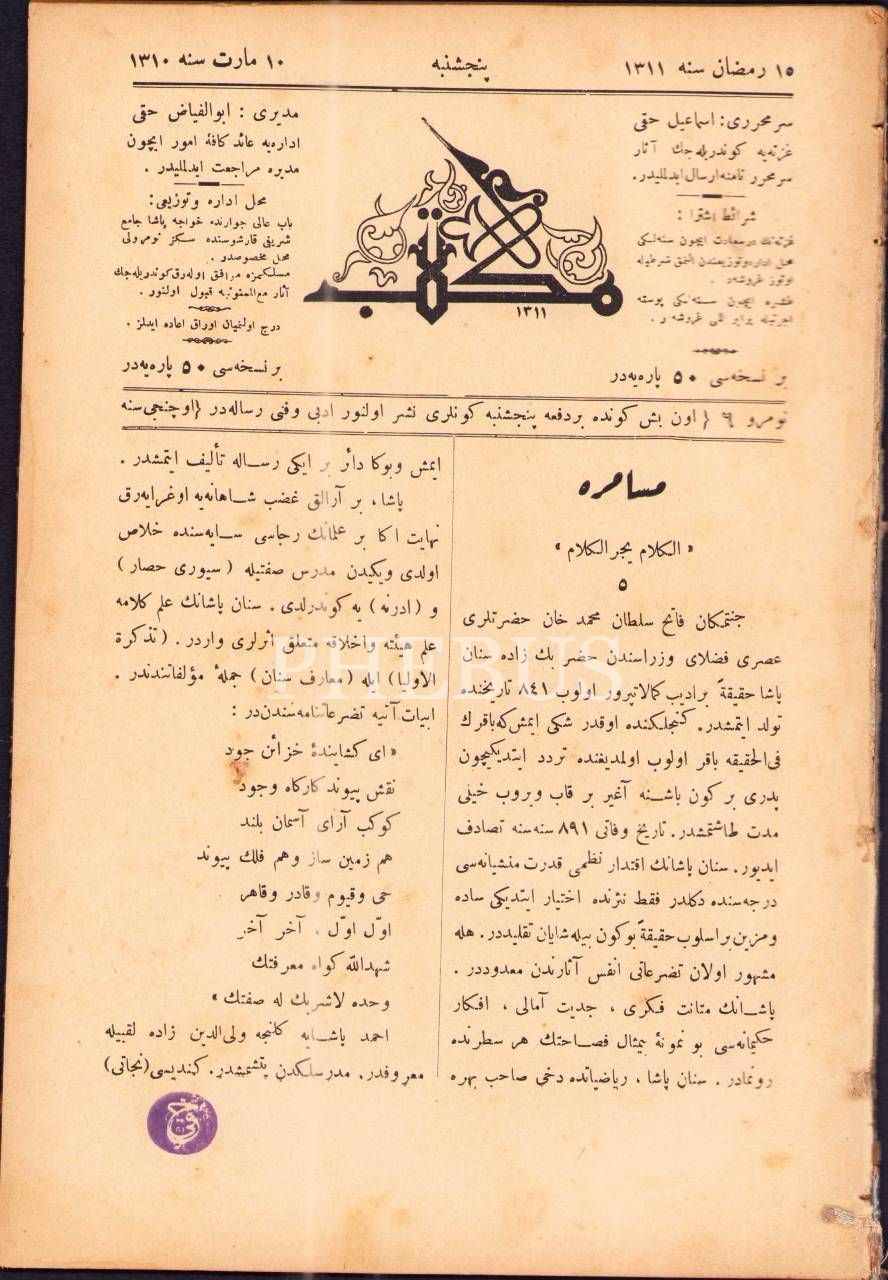 ١٥ رمضان سنه ١٣١١
پنجشنبه
١٠ مارت سنه ١٣١٠
سر محرری : اسماعیل حقی
غزته‌یه كوندریله‌جك آثار
سر محرر نامنه ارسال ایدلملیدر .
شرائط اشترا :
محل اداره و توزیعندن آلنمق شرطیله
اوتوز غروشدر .
طشره ایچون سنه‌لكی پوسته
بر نسخه‌سی ٥٠ پاره‌یه‌در
مكتب
١٣١١
مدیری : ابوالفیاض حقی
اداره‌یه عائد كافهٔ امور ایچون
مدیره مراجعت ایدلملیدر .
محل اداره و توزیعی :
باب عالی جوارنده خواجه پاشا جامع
شریفی قارشوسنده سكز نومرولی
محل مخصوصدر .
مسلكمزه موافق اوله‌رق كوندریله‌جك
آثار مع الممنونیه قبول اولنور .
درج اولنمیان اوراق اعاده ایدلمز .
بر نسخه‌سی ٥٠ پاره‌یه‌در
نومرو ٦ { اون بش كونده بر دفعه پنجشنبه كونلری نشر اولنور ادبی و فنی رساله‌در { اوچنجی سنه
مسامره
« الكلام یجر الكلام »
٥
جنتمكان فاتح سلطان محمد خان حضرتلری
عصری فضلای وزراسندن حضر بك زاده سنان
پاشا حقیقةً بر ادیب كمالاتپرور اولوب ٨٤١ تاریخنده
تولد ایتمشدر . كنجلكنده اوقدر شكی ایمش كه باقرك
فی الحقیقه باقر اولوب اولمدیغنده تردد ایتدیكیچون
پدری بر كون باشنه آغیر بر قاب ویروب خیلی
مدت طاشتمشدر . تاریخ وفاتی ٨٩١ سنه‌سنه تصادف
ایدیور . سنان پاشانك اقتدار نظمی قدرت منشیانه‌سی
درجه‌سنده دكلدر فقط نثرنده اختیار ایتدیكی ساده
و مزین بر اسلوب حقیقةً بوكون بیله شایان تقلیددر . هله
مشهور اولان تضرعاتی انفس آثارندن معدوددر .
پاشانك متانت فكری ، جدیت آمالی ، افكار
حكیمانه‌سی بو نمونهٔ بیمثال فصاحتك هر سطرنده
رونمادر . سنان پاشا ، ریاضیاتده دخی صاحب بهره
ایمش و بوكا دائر بر ایكی رساله تألیف ایتمشدر .
پاشا ، بر آرالق غضب شاهانه‌یه اوغرایه‌رق
نهایت اكا بر علمانك رجاسی سایه‌سنده خلاص
اولدی و یكیدن مدرس صفتیله ( سیوری حصار )
و ( ادرنه ) یه كوندرلدی . سنان پاشانك علم كلامه
علم هیئته و اخلاقه متعلق اثرلری واردر . ( تذكرة
الاولیا ) ایله ( معارف سنان ) جملهٔ مؤلفاتندندر .
ابیات آتیه تضرعاتنامه سندن‌در :
« ای كشایندهٔ خزائن جود
نقش پیوند كاركاه وجود
كوكب آرای آسمان بلند
هم زمین ساز و هم فلك پیوند
حی و قیوم و قادر و قاهر
اوّل اوّل ، آخر آخر
شهدالله كواه معرفتك
وحده لاشریك له صفتك »
احمد پاشایه كلنجه ولی الدین زاده لقبیله
معروفدر . مدرسلكدن یتشمشدر . كندیسی ( نجاتی )
PHEBUS